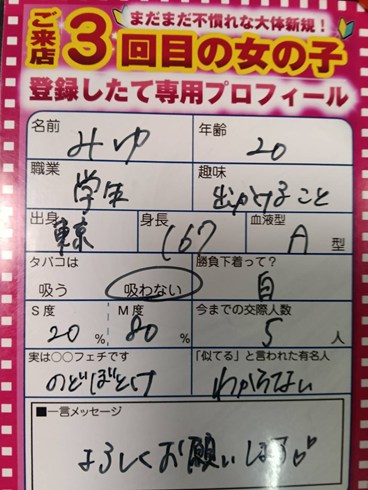 ご来店
まだまだ不慣れな大体新規！
3回目の女の子
登録したて専用プロフィール
名前 みゆ
年齢 20
職業 学生
趣味 出かけること
出身 東京
身長 167
血液型 A 型
タバコは 吸う 吸わない
勝負下着って？ 白
S度 20 %
M度 80 %
今までの交際人数 5 人
実は〇〇フェチです のどぼとけ
「似てる」と言われた有名人 わからない
■一言メッセージ
よろしくお願いします♡